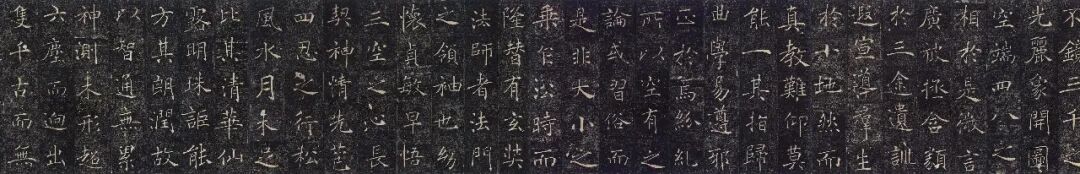 不鏡三千之
光麗象開圖
空端四八之
相於是微言
廣被拯含類
於三途遺訓
遐宣導群生
於十地然而
真教難仰莫
能一其指歸
曲學易遵邪
正於焉紛糺
所以空有之
論或習俗而
是非大小之
乘乍沿時而
隆替有玄奘
法師者法門
之領袖也幼
懷貞敏早悟
三空之心長
契神情先苞
四忍之行松
風水月未足
比其清華仙
露明珠詎能
方其朗潤故
以智通無累
神測未形超
六塵而迥出
隻千古而無